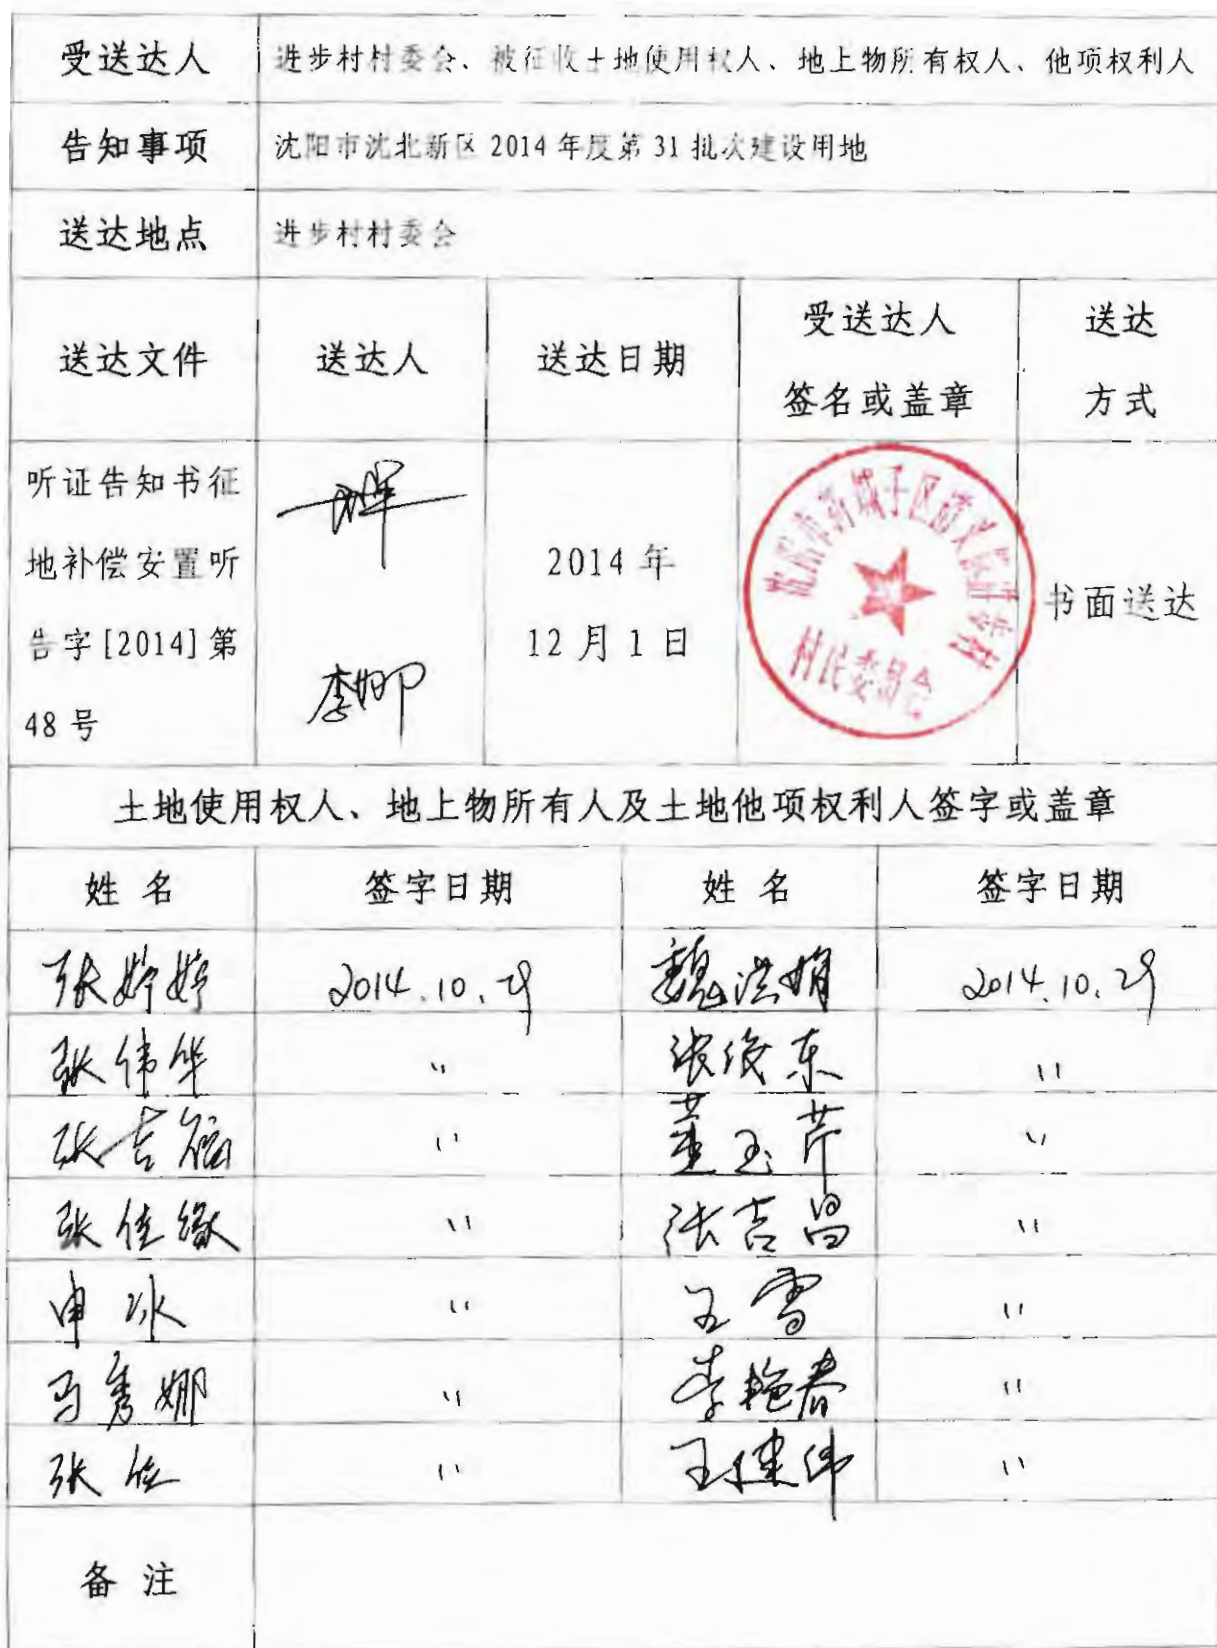 受送达人 进步村村委会、被征收土地使用权人、地上物所有权人、他项权利人
告知事项 沈阳市沈北新区 2014 年度第 31 批次建设用地
送达地点 进步村村委会
送达文件 送达人 送达日期 受送达人 签名或盖章 送达 方式
听证告知书征
地补偿安置听
告字[2014]第
48 号
李娜
2014 年
12 月 1 日
村民委员会
书面送达
土地使用权人、地上物所有人及土地他项权利人签字或盖章
姓 名 签字日期 姓 名 签字日期
张婷婷 2014.10.29 魏洪娟 2014.10.29
张伟华 〃 张俊东 〃
张吉福 〃 董玉芹 〃
张佳缘 〃 张吉昌 〃
申冰 〃 王雪 〃
马秀娜 〃 李艳春 〃
张佐 〃 王健伟 〃
备 注